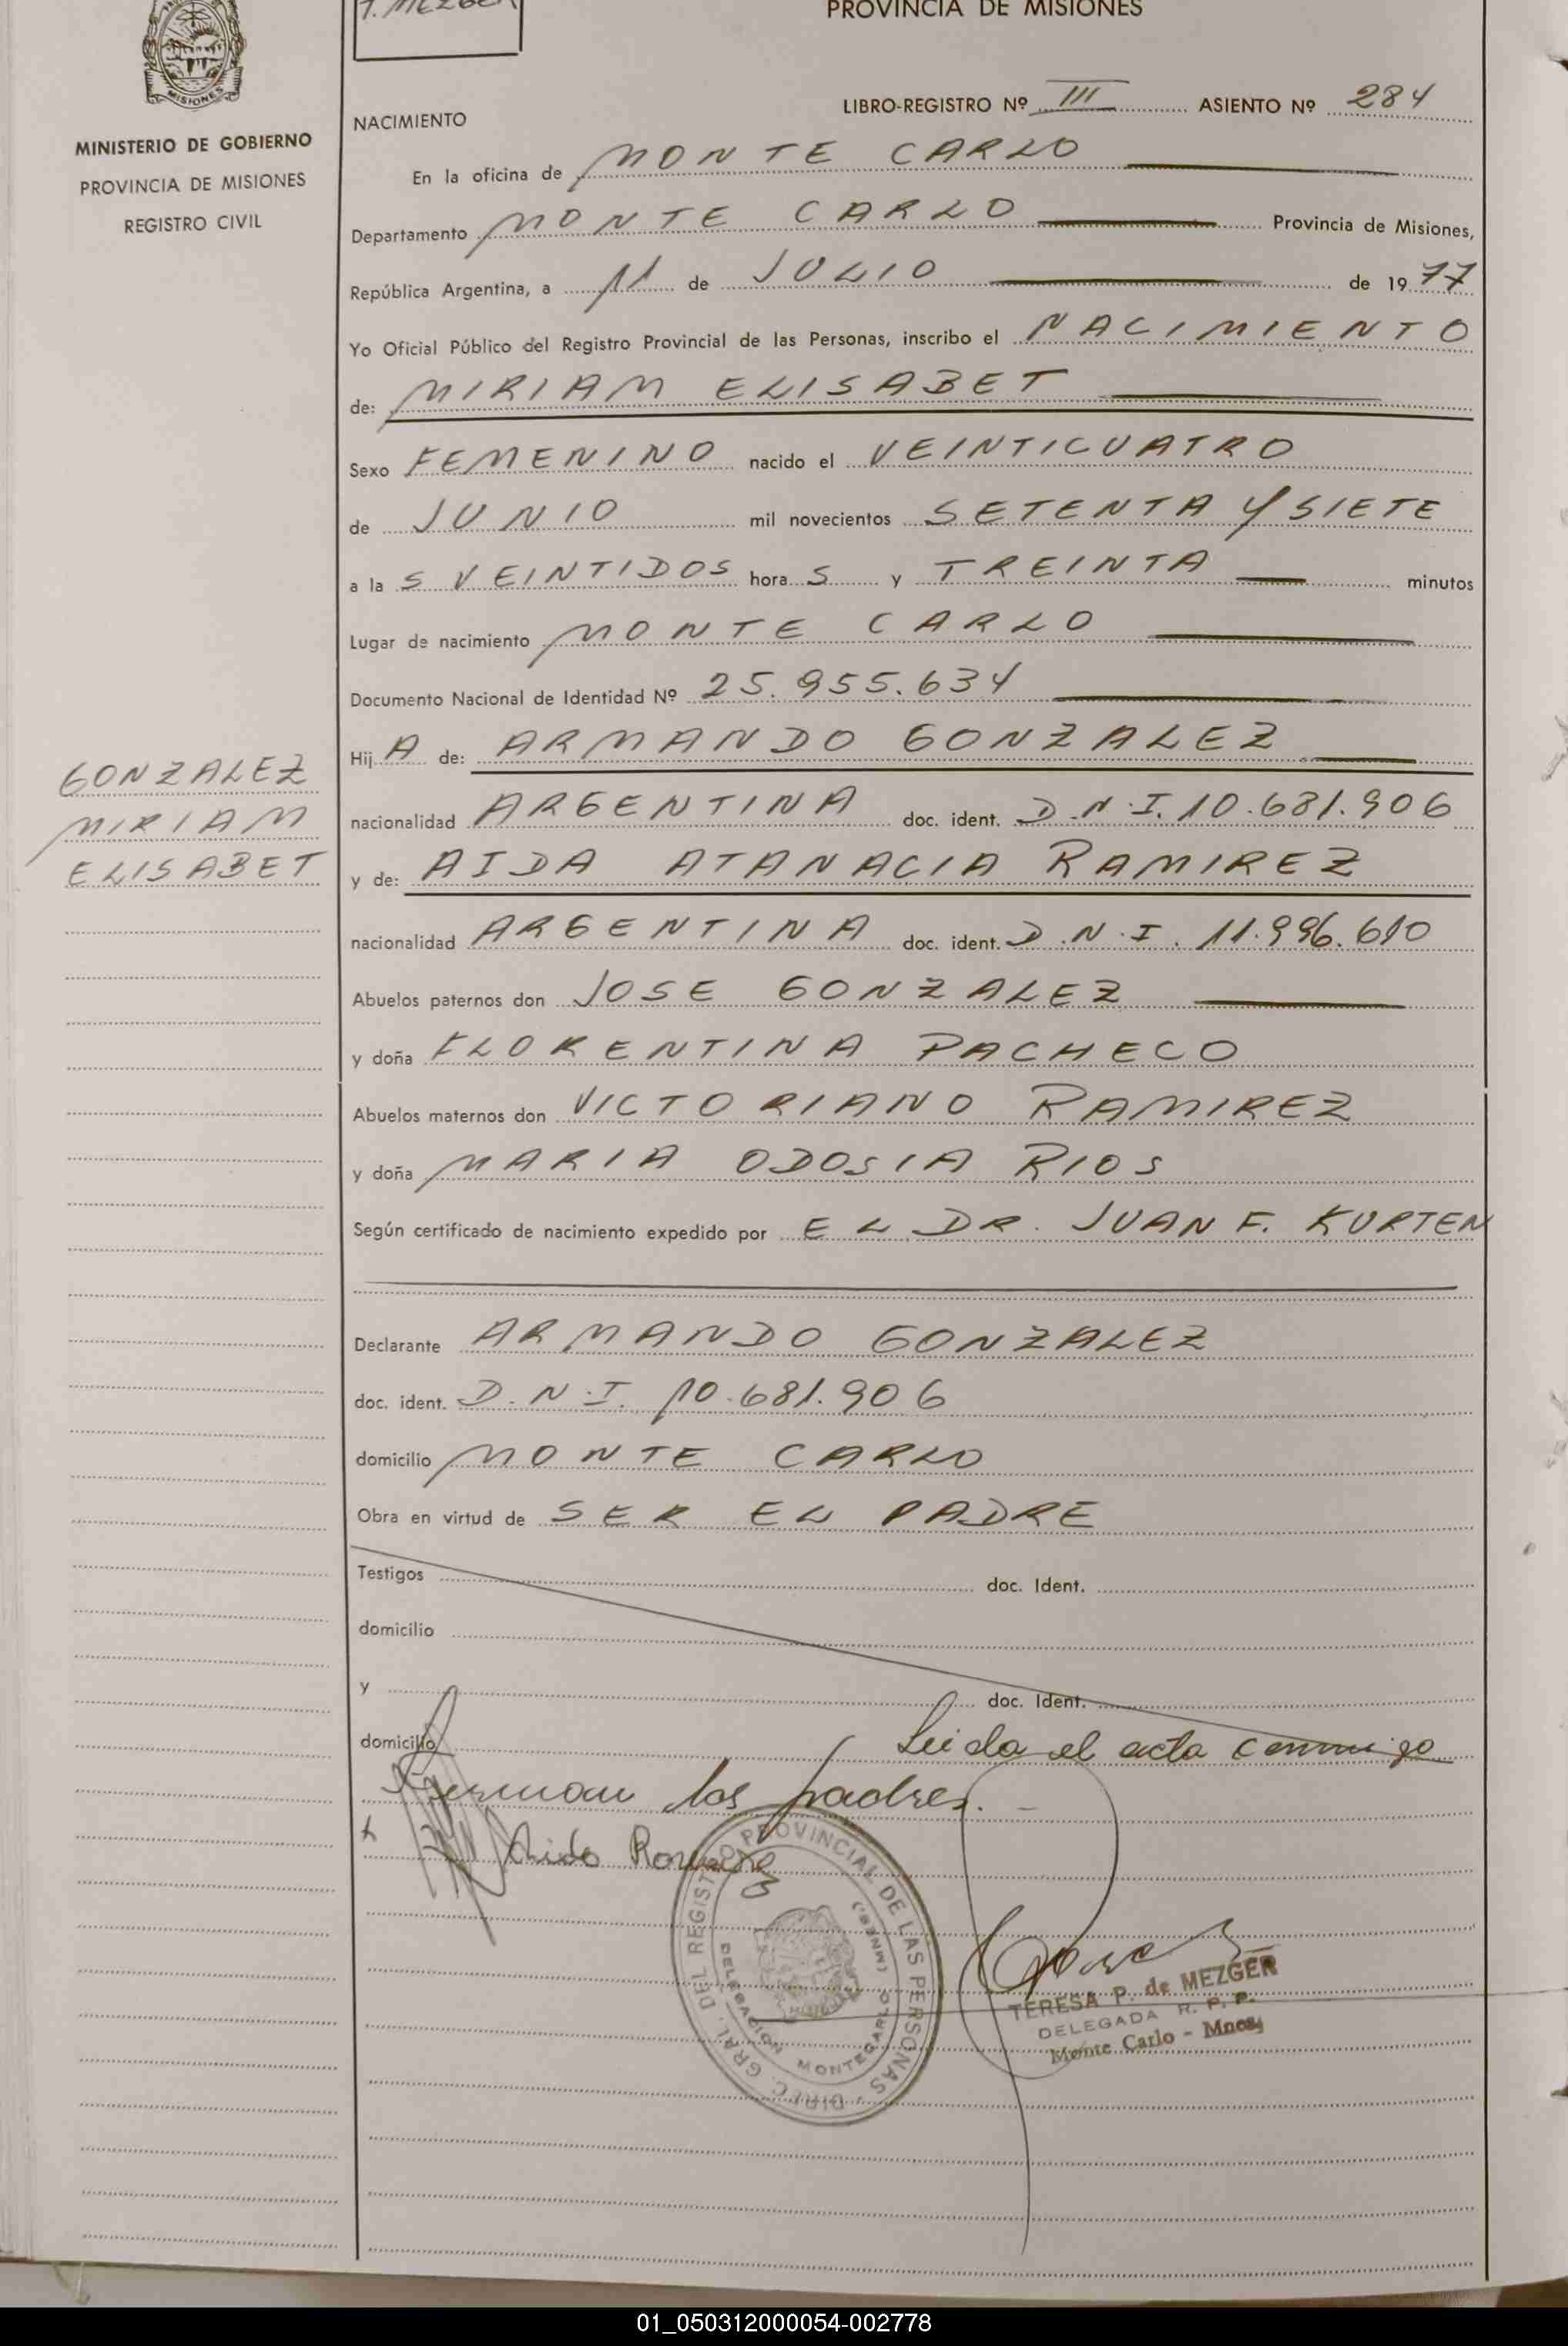 T. MEZGER
PROVINCIA DE MISIONES
MISIONES
MINISTERIO DE GOBIERNO
PROVINCIA DE MISIONES
REGISTRO CIVIL
LIBRO-REGISTRO Nº III ASIENTO Nº 284
NACIMIENTO
En la oficina de MONTE CARLO
Departamento MONTE CARLO Provincia de Misiones,
República Argentina, a 11 de JULIO de 1977
Yo Oficial Público del Registro Provincial de las Personas, inscribo el NACIMIENTO
de: MIRIAM ELISABET
Sexo FEMENINO nacido el VEINTICUATRO
de JUNIO mil novecientos SETENTA Y SIETE
a la S VEINTIDOS hora S y TREINTA minutos
Lugar de nacimiento MONTE CARLO
Documento Nacional de Identidad Nº 25.955.634
Hij A de: ARMANDO GONZALEZ
GONZALEZ
MIRIAM
ELISABET
nacionalidad ARGENTINA doc. ident. D.N.I. 10.681.906
y de: AIDA ATANACIA RAMIREZ
nacionalidad ARGENTINA doc. ident. D.N.I. 11.996.610
Abuelos paternos don JOSE GONZALEZ
y doña FLORENTINA PACHECO
Abuelos maternos don VICTORIANO RAMIREZ
y doña MARIA ODOSIA RIOS
Según certificado de nacimiento expedido por EL DR. JUAN F. KURTEN
Declarante ARMANDO GONZALEZ
doc. ident. D.N.I. 10.681.906
domicilio MONTE CARLO
Obra en virtud de SER EL PADRE
Testigos doc. Ident.
domicilio
y doc. Ident.
domicilio Leida el acta conmigo
firman los padres.
Aida Ramirez
DIREC. GRAL. DEL REGISTRO PROVINCIAL DE LAS PERSONAS
DELEGACION MONTECARLO (MNES.)
TERESA P. de MEZGER
DELEGADA R. P. P.
Monte Carlo - Mnes.
01_050312000054-002778